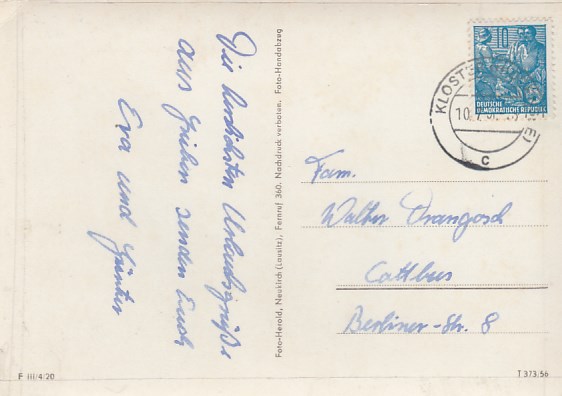 Die herzlichsten Urlaubsgrüße
aus Grieben senden Euch
Eva und Günter
Foto-Herold, Neukirch (Lausitz), Fernruf 360. Nachdruck verboten. Foto-Handabzug
10
DEUTSCHE
DEMOKRATISCHE REPUBLIK
KLOSTER
c
Fam.
Walter
Cottbus
Berliner-Str. 8
F III/4/20
T 373/56